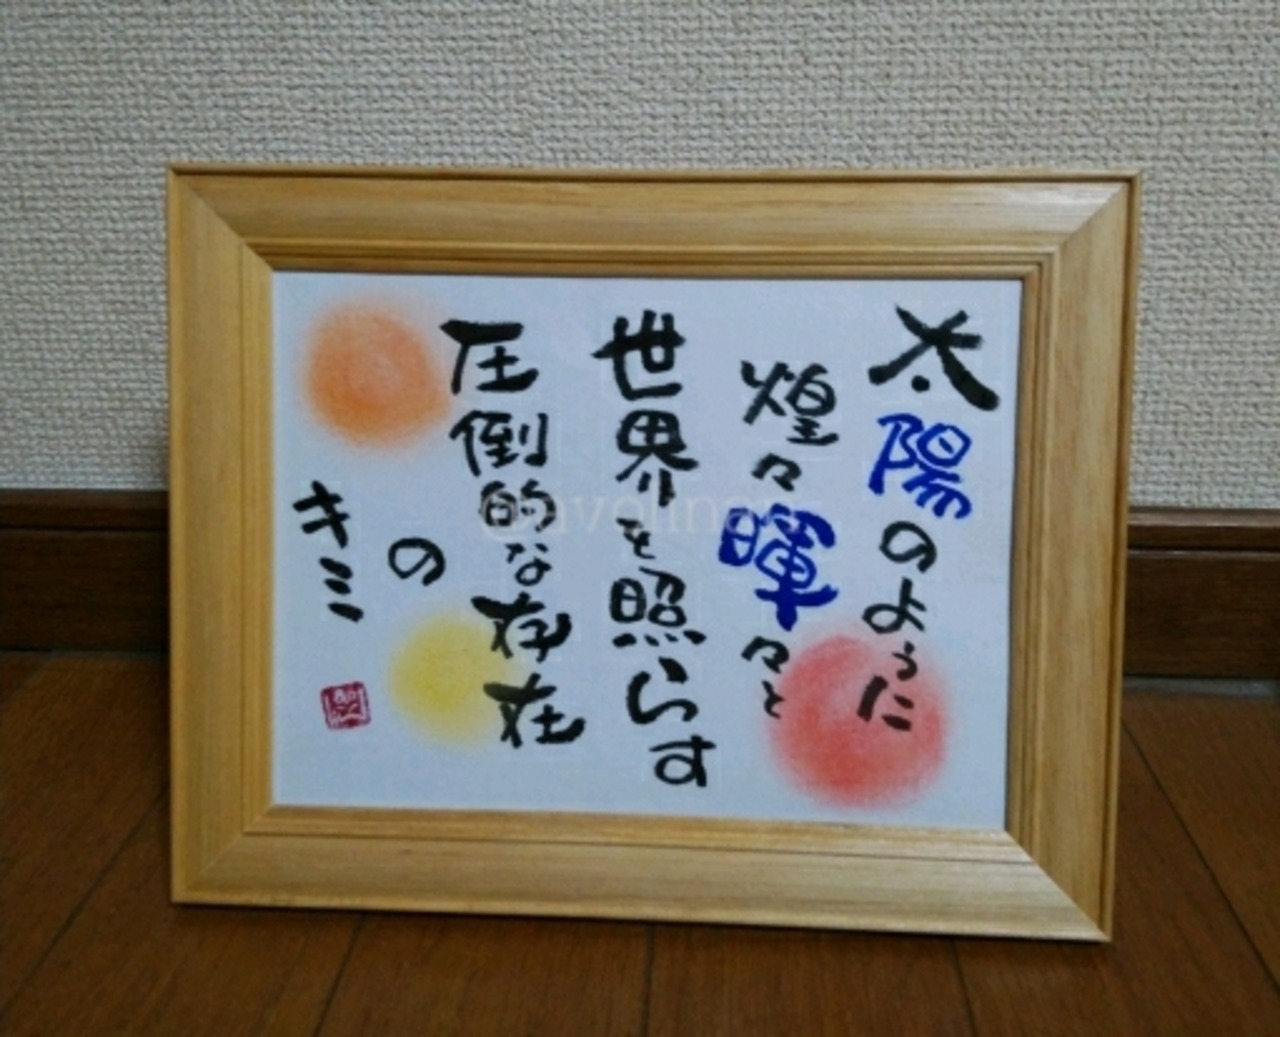 太陽のように
煌々暉々と
世界を照らす
圧倒的な存在
の
キミ